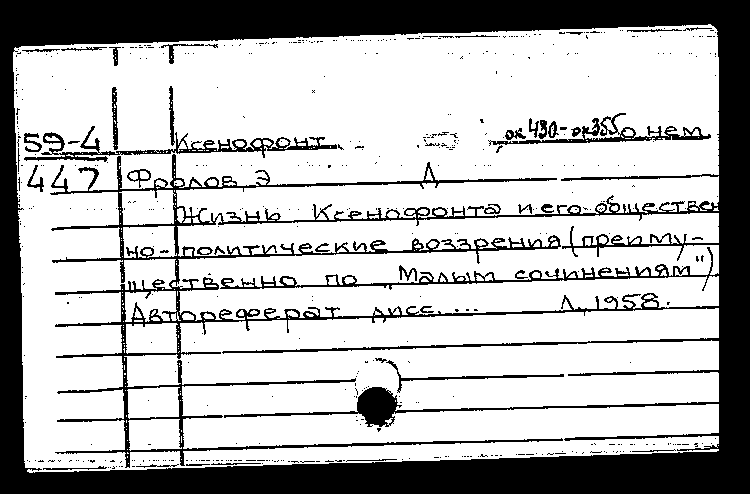 59-4 Ксенофонт ок 430-ок 355 о нем
447 Фролов, Э Д
Жизнь Ксенофонта и его обществен
но-политические воззрения (преиму-
щественно по „Малым сочинениям")
Автореферат дисс.... Л., 1958.